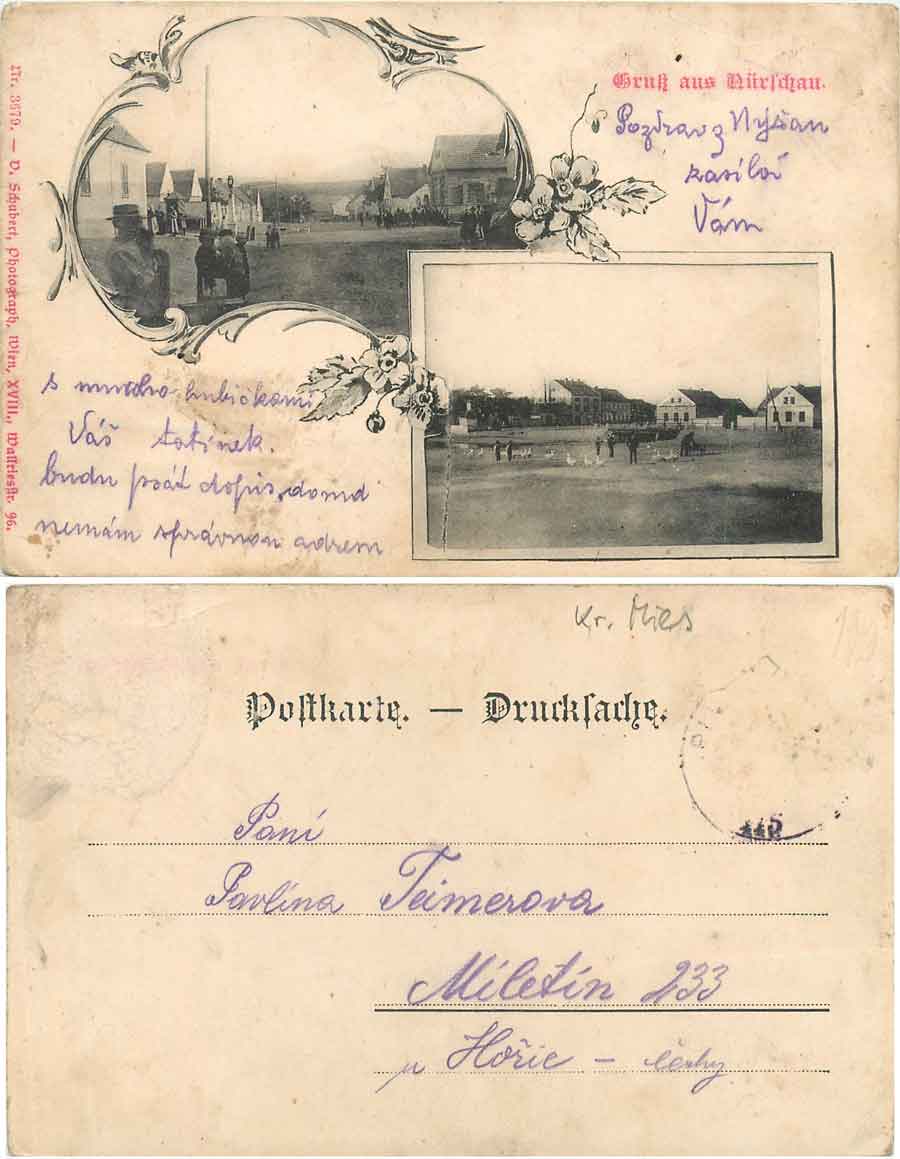 Gruß aus Nürschau.
Pozdrav z Nýřan
zasílá
Vám
s mnoha hubičkami
Váš tatínek.
budu psát dopis, domů
nemám správnou adresu
Nr. 3679. — V. Schubert, Photograph, Wien, XVIII.,  96.
Kr. Mies
Postkarte. — Drucksache.
Paní
Pavlína Teimerova
Miletín 233
u Hořic – Čechy